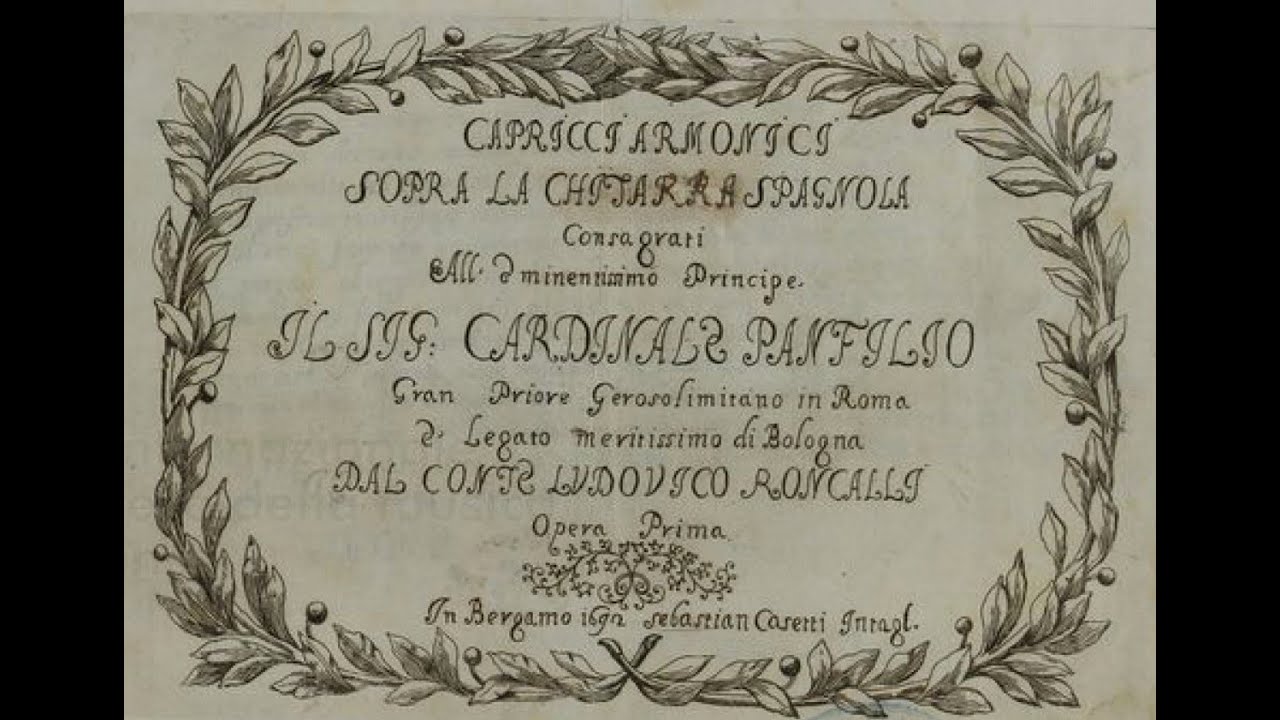 CAPRICCI ARMONICI
SOPRA LA CHITARRA SPAGNOLA
Consagrati
All. Eminentissimo Principe.
IL SIG: CARDINALE PANFILIO
Gran Priore Gerosolimitano in Roma
E. Legato meritissimo di Bologna
DAL CONTE LVDOVICO RONCALLI
Opera Prima
In Bergamo 1692 Sebastian Casetti Intagl.